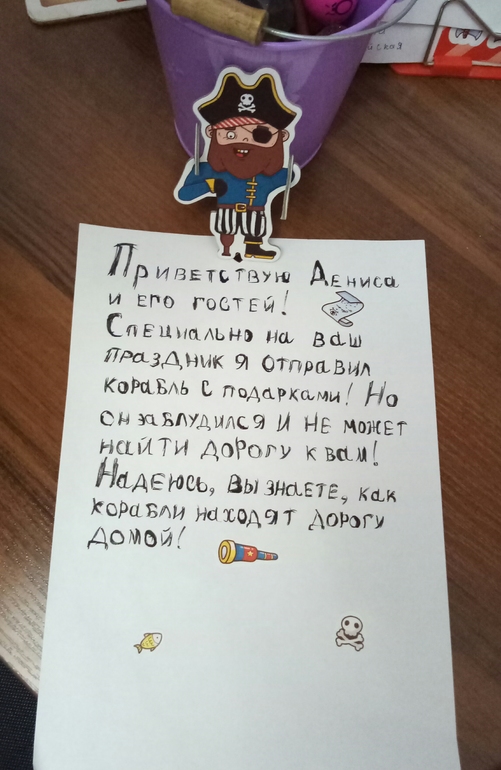 ская
Приветствую Дениса
и его гостей!
Специально на ваш
праздник я отправил
корабль с подарками! Но
он заблудился и не может
найти дорогу к вам!
Надеюсь, вы знаете, как
корабли находят дорогу
домой!